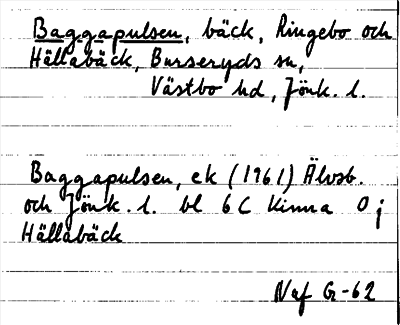 Baggapulsen, bäck, Ringebo och
Hällabäck, Burseryds sn,
Västbo hd, Jönk. l.
Baggapulsen, ek (1961) Älvsb.
och Jönk. l. bl 6C Kinna O j
Hällabäck
Naf G-62